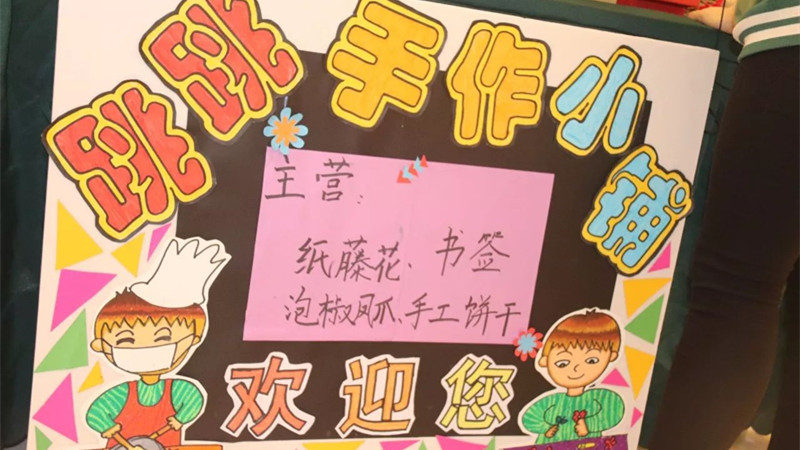 跳跳手作小铺
主营：
纸藤花、书签
泡椒凤爪、手工饼干
欢迎您